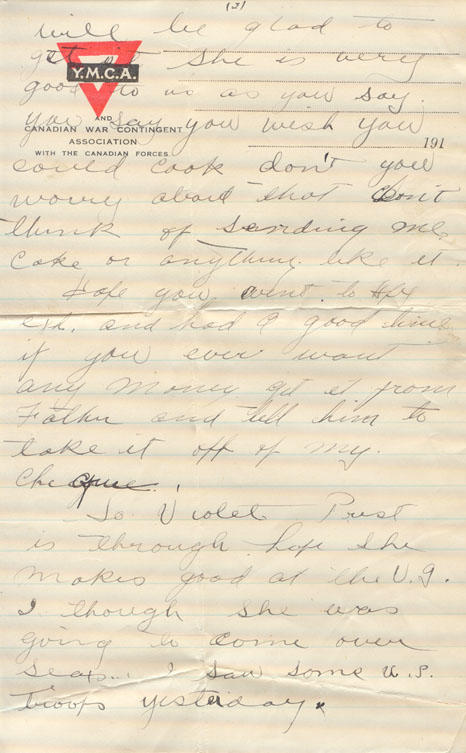 (3)
will be glad to
get it she is very
Y.M.C.A.
good to us as you say.
AND
CANADIAN WAR CONTINGENT
ASSOCIATION
WITH THE CANADIAN FORCES
you say you wish you
191
could cook don't you
worry about that don't
think of sending me
cake or anything like it.
Hope you went to Hfx
ex. and had a good time
if you ever want
any money get it from
Father and tell him to
take it off of my
cheque.
So Violet Prest
is through hope she
makes good at the V.G.
I though she was
going to come over
seas. I saw some U.S.
troops yesterday.